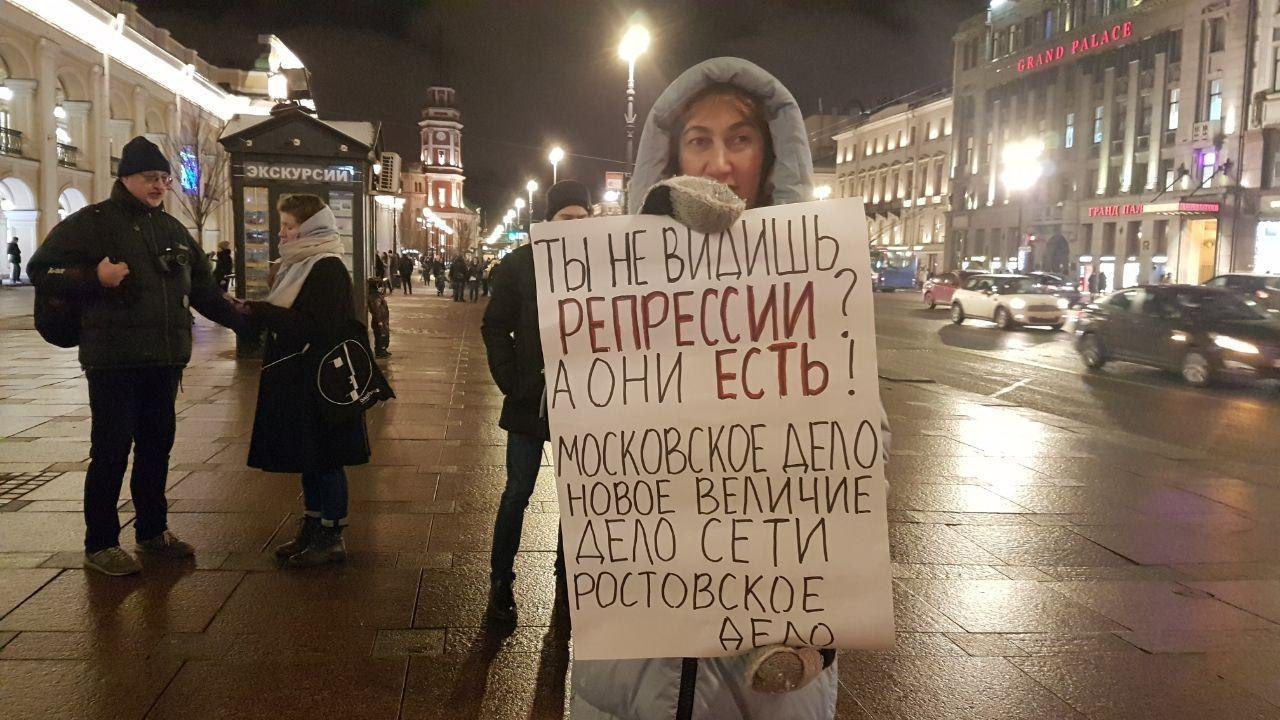 GRAND PALACE
ЭКСКУРСИИ
ТЫ НЕ ВИДИШЬ
РЕПРЕССИИ?
А ОНИ ЕСТЬ!
МОСКОВСКОЕ ДЕЛО
НОВОЕ ВЕЛИЧИЕ
ДЕЛО СЕТИ
РОСТОВСКОЕ
ДЕЛО